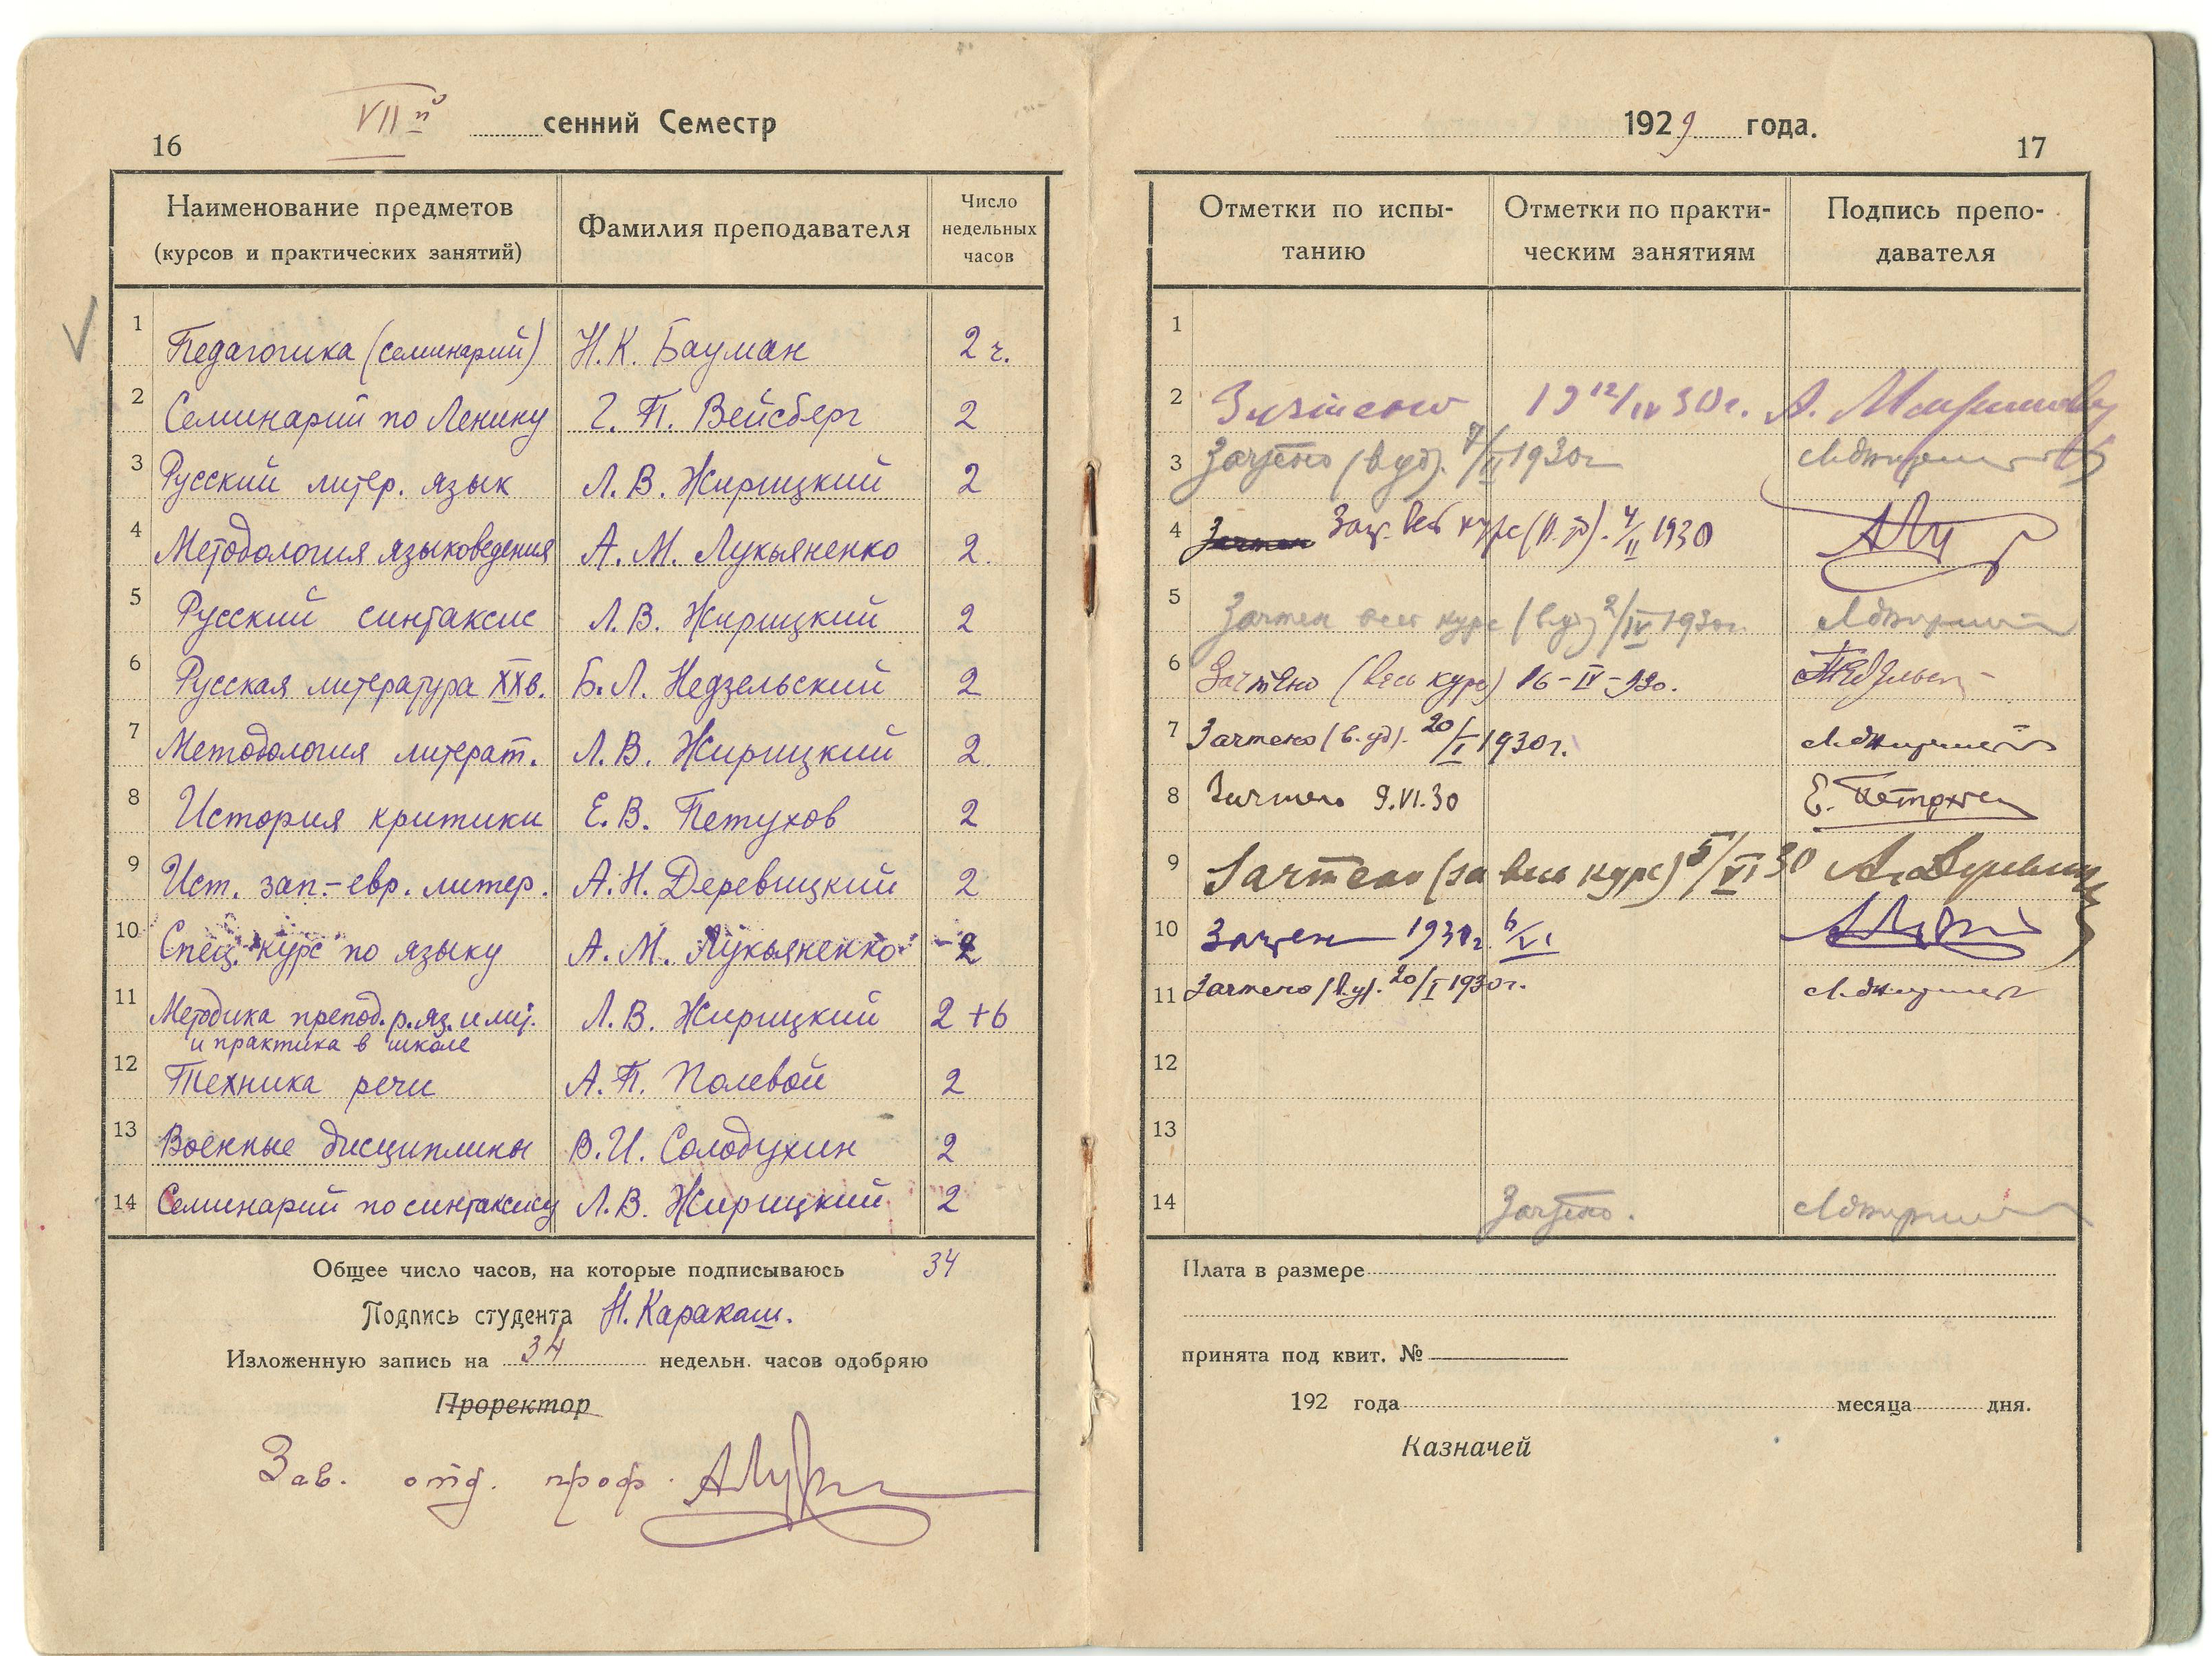 16
VII й сенний Семестр
Наименование предметов
(курсов и практических занятий)
Фамилия преподавателя
Число
недельных
часов
1 Педагогика (семинарий) Н. К. Бауман 2 ч.
2 Семинарий по Ленину Г. П. Вейсберг 2
3 Русский литер. язык Л. В. Жирицкий 2
4 Методология языковедения А. М. Лукьяненко 2.
5 Русский синтаксис Л. В. Жирицкий 2
6 Русская литература XX в. Б. Л. Недзельский 2
7 Методология литерат. Л. В. Жирицкий 2.
8 История критики Е. В. Петухов 2
9 Ист. зап.-евр. литер. А. Н. Деревицкий 2
10 Спец. курс по языку А. М. Лукьяненко 2
11 Методика препод. р. яз. и лит. Л. В. Жирицкий 2 + 6
и практика в школе
12 Техника речи А. П. Полевой 2
13 Военные дисциплины В. И. Солодухин 2
14 Семинарий по синтаксису Л. В. Жирицкий 2
Общее число часов, на которые подписываюсь 34
Подпись студента Н. Каракаш.
Изложенную запись на 34 недельн. часов одобряю
Проректор
Зав. отд. проф.
1929 года.
17
Отметки по испы-
танию
Отметки по практи-
ческим занятиям
Подпись препо-
давателя
1
2 Зачтено 19 12/IV 30 г. А.
3 Зачтено (в. уд). 7/II 1930 г
4 Зач. весь курс (в. уд). 4/II 1930
5 Зачтен весь курс (в. уд) 2/IV 1930 г.
6 Зачтено (весь курс) 16-IV-930.
7 Зачтено (в. уд). 20/I 1930 г.
8 Зачтено 9.VI.30 Е. Петухов
9 Зачтено (за весь курс) 5/VI 30 А. Деревиц
10 Зачтен 1930 г. 6/VI
11 Зачтено (в. у). 20/I 1930 г.
12
13
14 Зачтено.
Плата в размере
принята под квит. №
192 года месяца дня.
Казначей